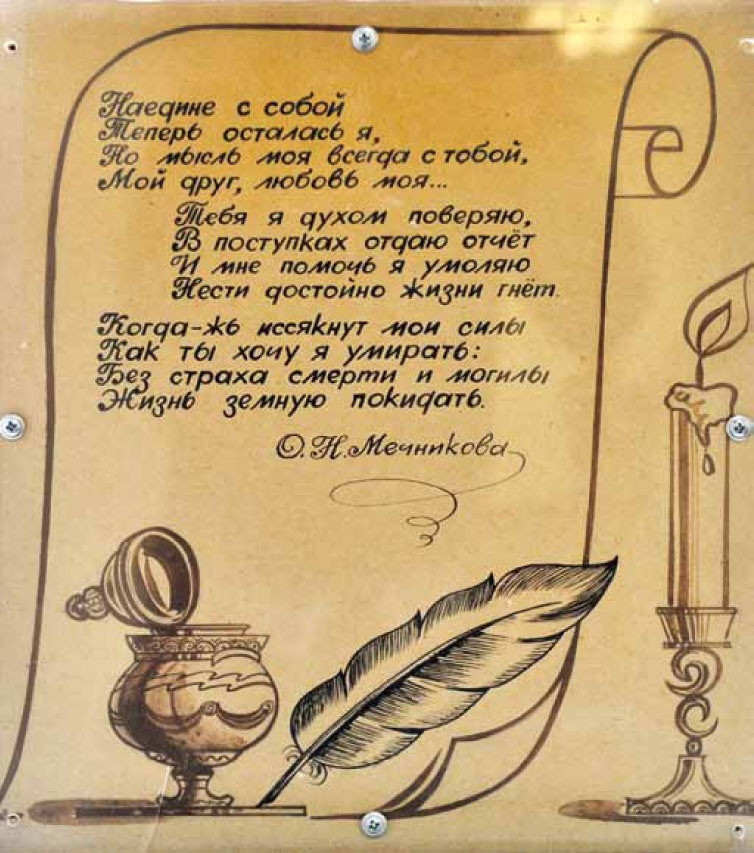 Наедине с собой
Теперь осталась я,
Но мысль моя всегда с тобой,
Мой друг, любовь моя...
Тебя я духом поверяю,
В поступках отдаю отчёт
И мне помочь я умоляю
Нести достойно жизни гнёт.
Когда-жь иссякнут мои силы
Как ты хочу я умирать:
Без страха смерти и могилы
Жизнь земную покидать.
О.Н.Мечникова